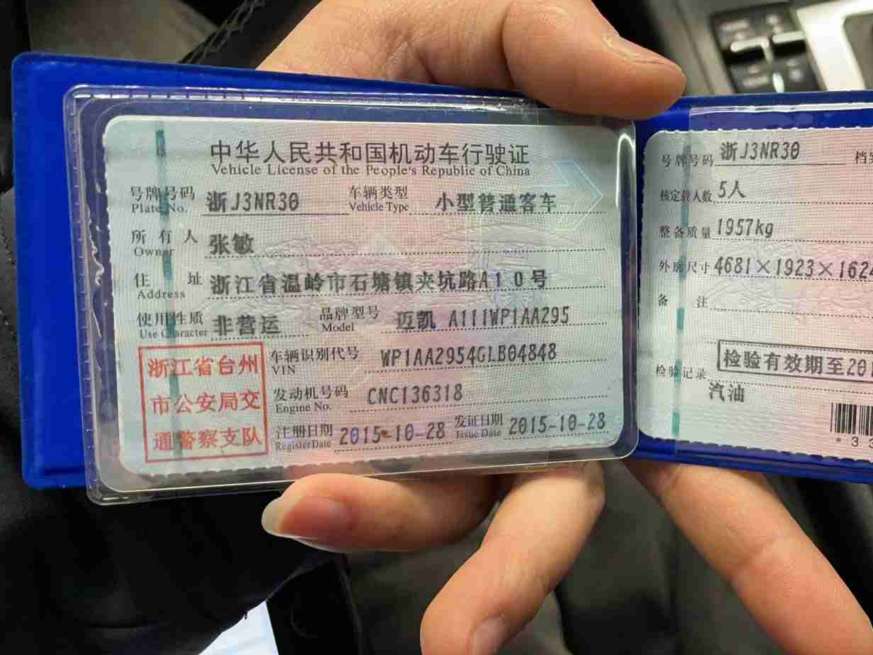 中华人民共和国机动车行驶证
Vehicle License of the People's Republic of China
号牌号码 浙J3NR30 车辆类型 小型普通客车
Plate No. Vehicle Type
所有人 张敏
Owner
住址 浙江省温岭市石塘镇夹坑路A10号
Address
使用性质 非营运 品牌型号 迈凯 A111WP1AA295
Use Character Model
浙江省台州
市公安局交
通警察支队
车辆识别代号 WP1AA2954GLB04848
VIN
发动机号码 CNC136318
Engine No.
注册日期 2015-10-28 发证日期 2015-10-28
Register Date Issue Date
号牌号码 浙J3NR30 档
核定载人数 5人
整备质量 1957kg
外廓尺寸 4681×1923×1624
备注
检验记录 检验有效期至201
汽油
*33